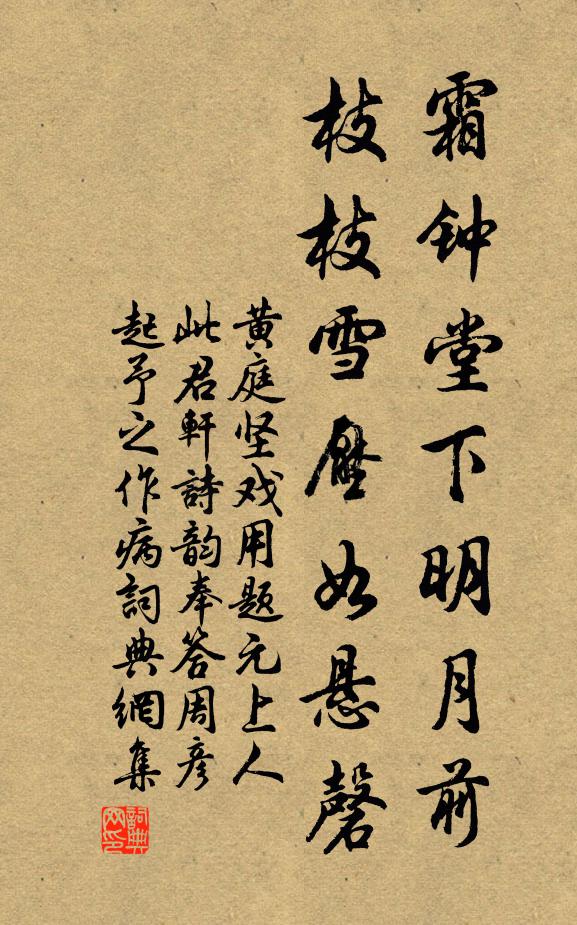 霜钟堂下明月前
枝枝雪壓如悬磬
黄庭坚戏用题元上人
此君軒詩韵奉答周彦
起予之作病詞典網集
詞典网印